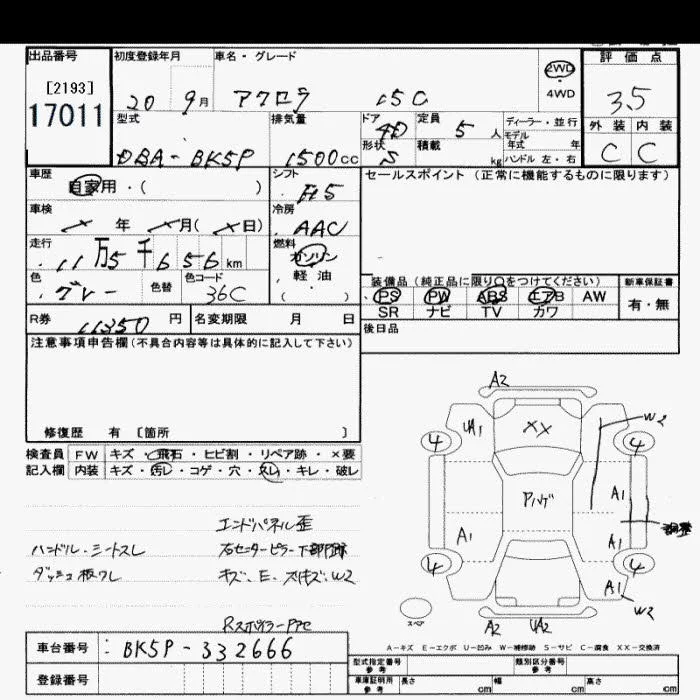 出品番号
[2193]
17011
初度登録年月
20 9月
車名・グレード
アクセラ 15C
2WD
4WD
評価点
3.5
外装 内装
C C
型式
DBA-BK5P
排気量
1500cc
ドア
4D
形状
S
定員
5人
積載
kg
ディーラー・並行
モデル
年式 年
ハンドル 左・右
車歴
自家用・( )
シフト
冷房
AAC
車検
年 月( 日)
走行
11万5千656km
燃料
ガソリン
軽油
( )
色
グレー
色替
色コード
36C
R券
11350円
名変期限 月 日
セールスポイント(正常に機能するものに限ります)
装備品(純正品に限り○をつけてください)
PS PW ABS エアB AW
SR ナビ TV カワ
新車保証書
有・無
後日品
注意事項申告欄(不具合内容等は具体的に記入して下さい)
修復歴 有 〔箇所 〕
検査員
記入欄
FW キズ・飛石・ヒビ割・リペア跡・×要
内装 キズ・汚レ・コゲ・穴・スレ・キレ・破レ
エンドパネル歪
ハンドル・シートスレ
右センターピラー下部凹跡
ダッシュ板ワレ
キズ、E、スリキズ、W2
A2
UA1
XX
W2
4
4
A1
A1
A1
4
4
A1
W2
A2
UA2
スペア
A-キズ E-エクボ U-凹み W-補修跡 S-サビ C-腐食 XX-交換済
車台番号 BK5P-332666
登録番号
型式指定番号
参考
類別区分番号
参考
車庫証明用
参考
長さ cm 幅 cm 高さ cm